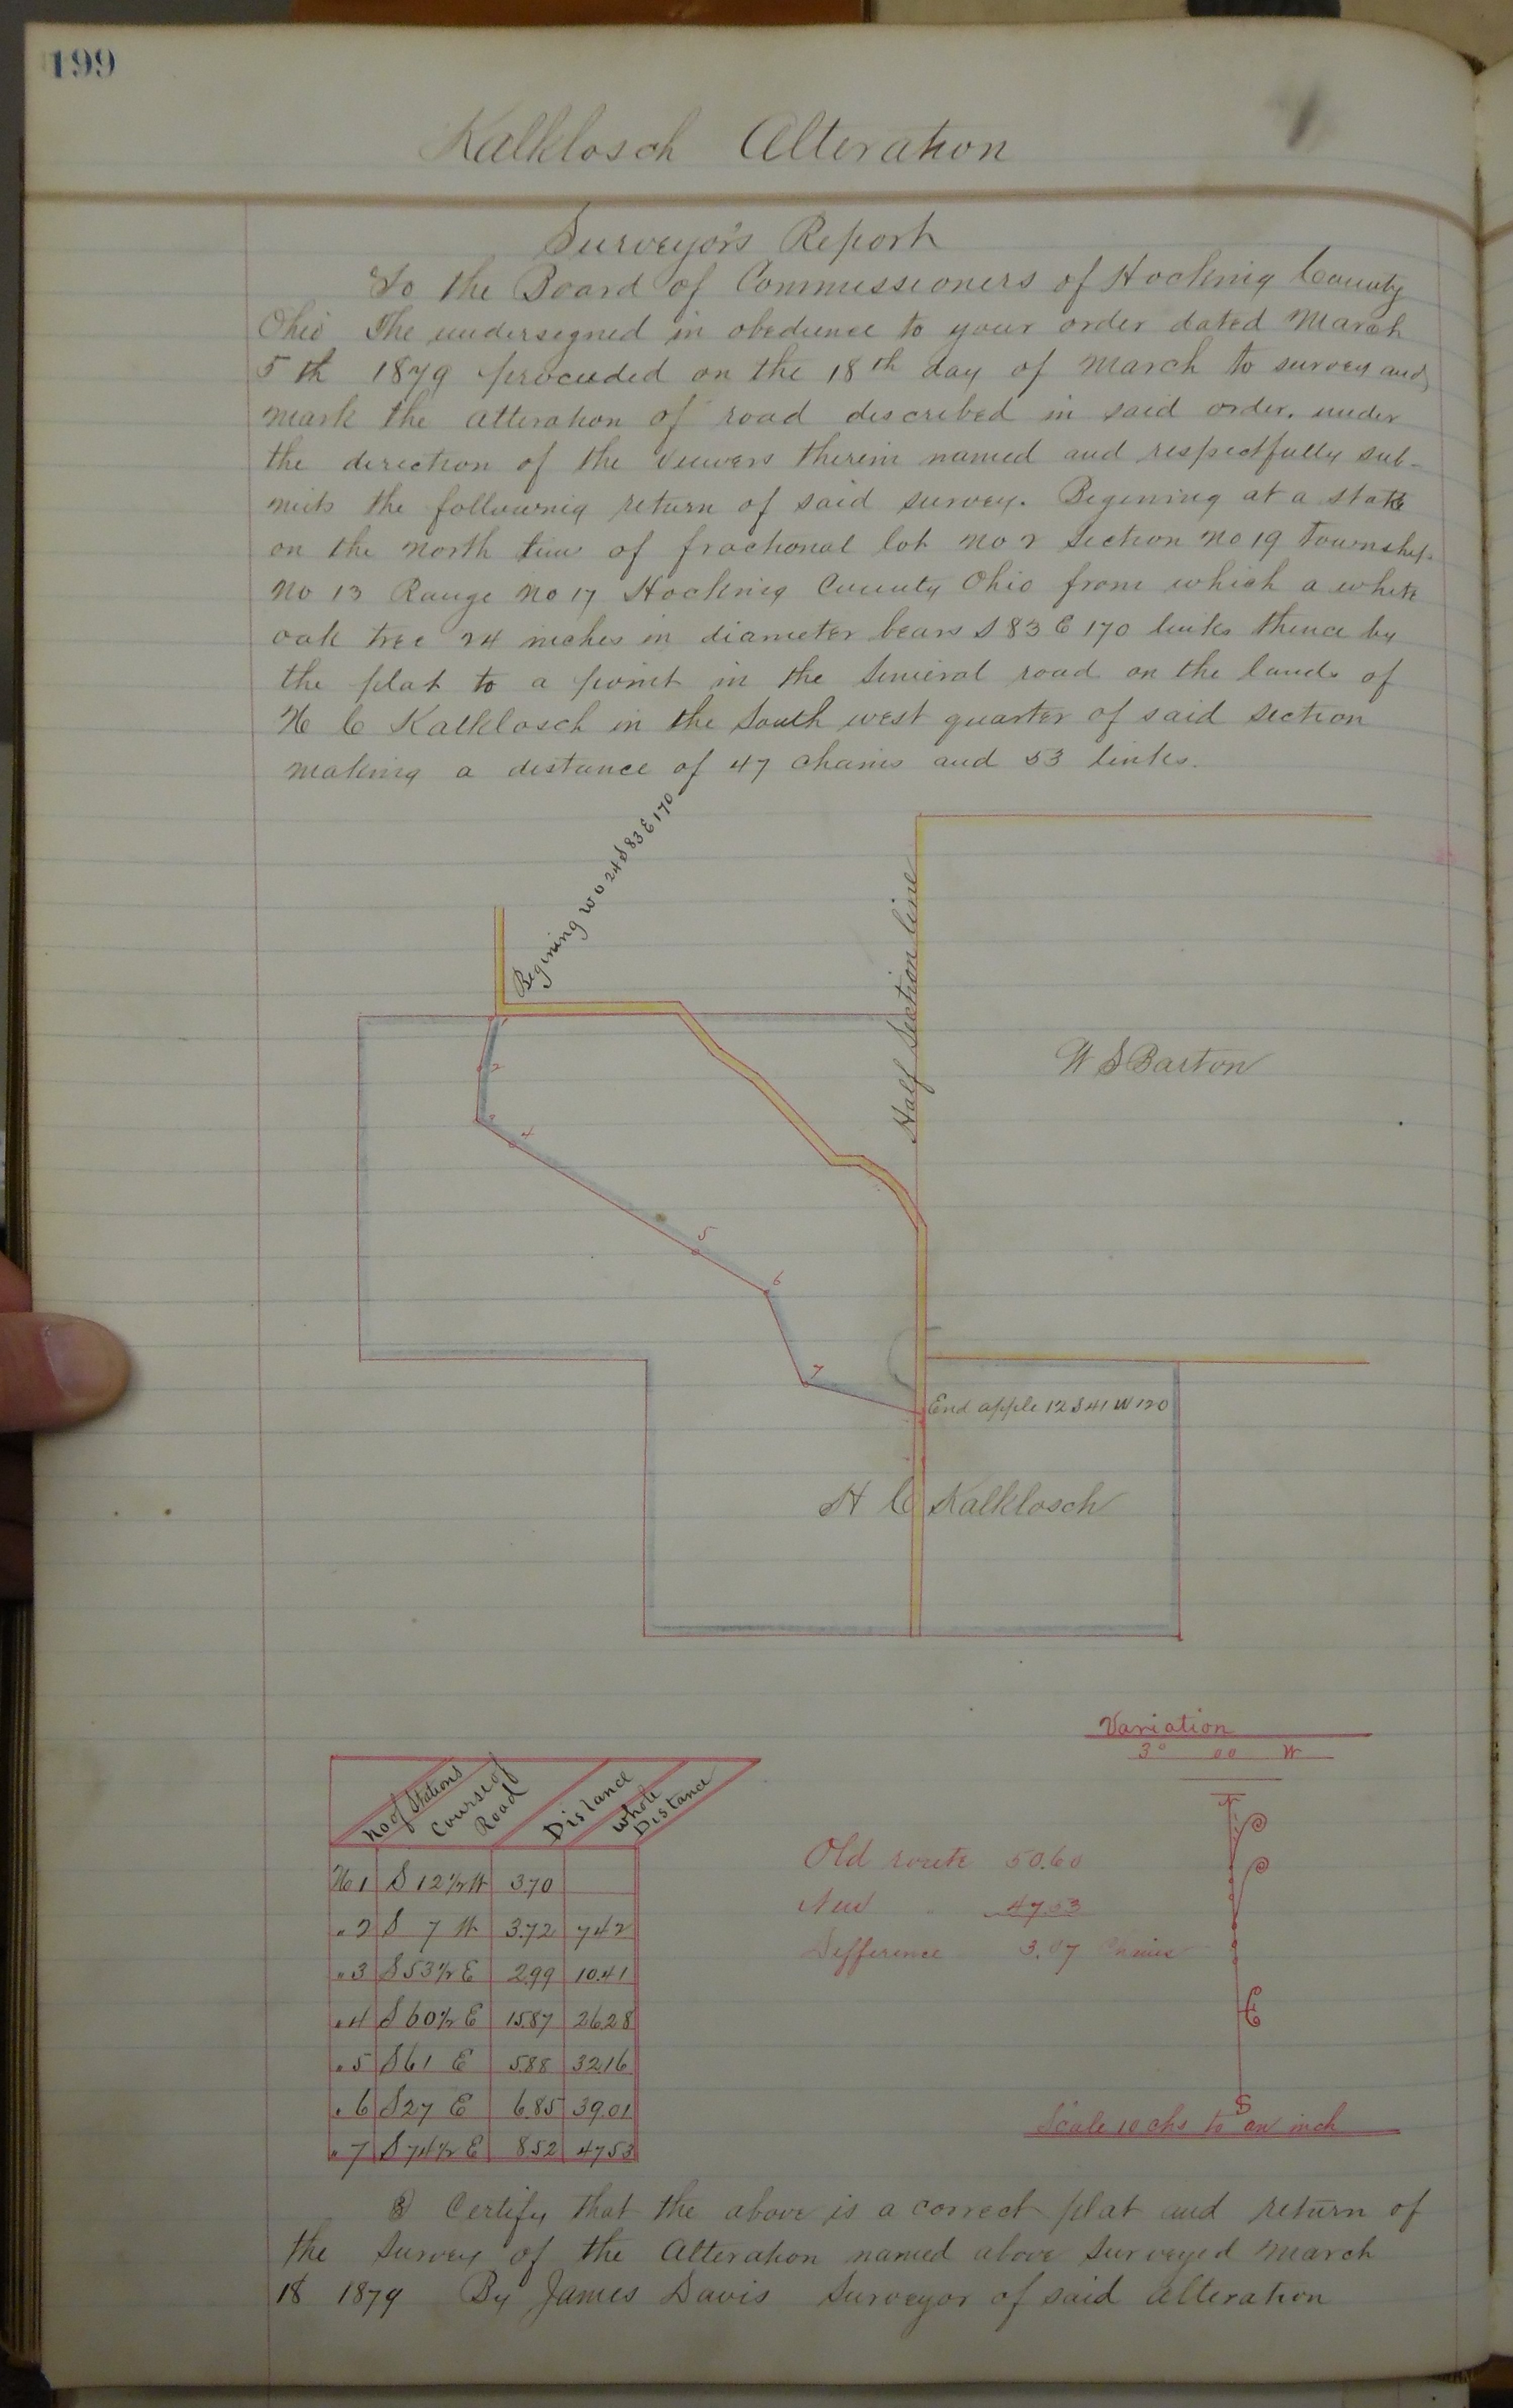 199
Kalklosch Alteration
Surveyor's Report
To the Board of Commissioners of Hocking County
Ohio The undersigned in obedience to your order dated March
5th 1879 proceeded on the 18th day of March to survey and
mark the alteration of road described in said order. under
the direction of the viewers therein named and respectfully sub-
mits the following return of said survey. Begining at a stake
on the north line of fractional lot No 2 Section No 19 Township
No 13 Range No 17 Hocking County Ohio from which a white
oak tree 24 inches in diameter bears S 83 E 170 links thence by
the plat to a point in the road on the lands of
H C Kalklosch in the South west quarter of said section
making a distance of 47 chains and 53 links.
Begining W O 24 S 83 E 170
Half Section line
W S Barton
1
2
3
4
5
6
7
End apple 12 S 41 W 120
H C Kalklosch
Variation
3° 00 W
No of Stations Course of Road Distance Whole Distance
No 1 S 12½ W 3.70
" 2 S 7 W 3.72 7.42
" 3 S 53½ E 2.99 10.41
" 4 S 60½ E 15.87 26.28
" 5 S 61 E 5.88 32.16
" 6 S 27 E 6.85 39.01
" 7 S 74½ E 8.52 47.53
Old route 50.60
New " 47.53
Difference 3.07 Chains
N
E
S
Scale 10 chs to an inch
I Certify that the above is a correct plat and return of
the survey of the alteration named above surveyed March
18 1879 By James Davis Surveyor of said alteration